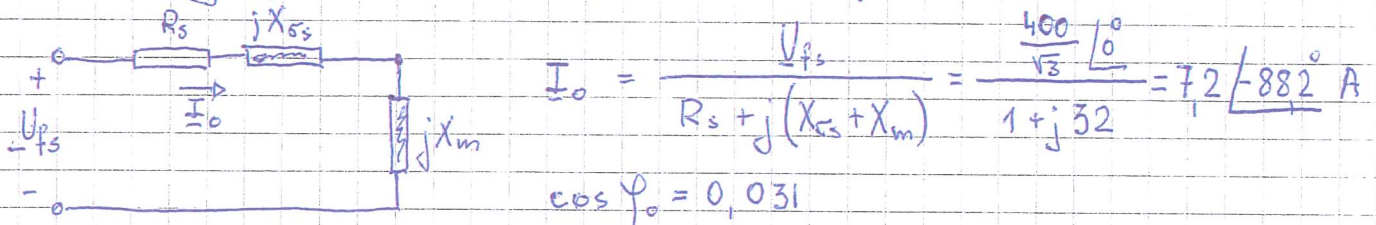 Rs jXσs
+ I₀ U̲fs - jXm
I̲₀ = U̲fs / (Rs + j(Xσs + Xm)) = (400/√3 ∠0°) / (1 + j32) = 7,2 ∠-88,2° A
cos φ₀ = 0,031